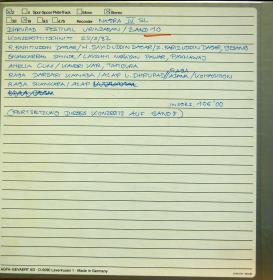 Spur-Speed Field-Track Mono Stereo
9,5 19 38 Recorder NAGRA IV SL
DHRUPAD FESTIVAL VRINDABAN / BAND 10
KONZERTMITSCHNITT 25/3/82
R. FAHIMUDDIN DAGAR / H. SAYIDUDDIN DAGAR / Z. FARIDUDDIN DAGAR, GESANG
SHANKARRAO SHINDE / LAXSHMI NARAYAN PAWAR, PAKHAWAJ
AMELIA CUNI / KAVERI KAR, TANPURA
RAGA DARBARI KANADA / ALAP U. DHRUPAD / RAGA ADANA / KOMPOSITION
RAGA SHANKARA / ALAP
INSGES. 106'00
(FORTSETZUNG DIESES KONZERTS AUF BAND 8)
AGFA-GEVAERT AG · D-5090 Leverkusen 1 · Made in Germany